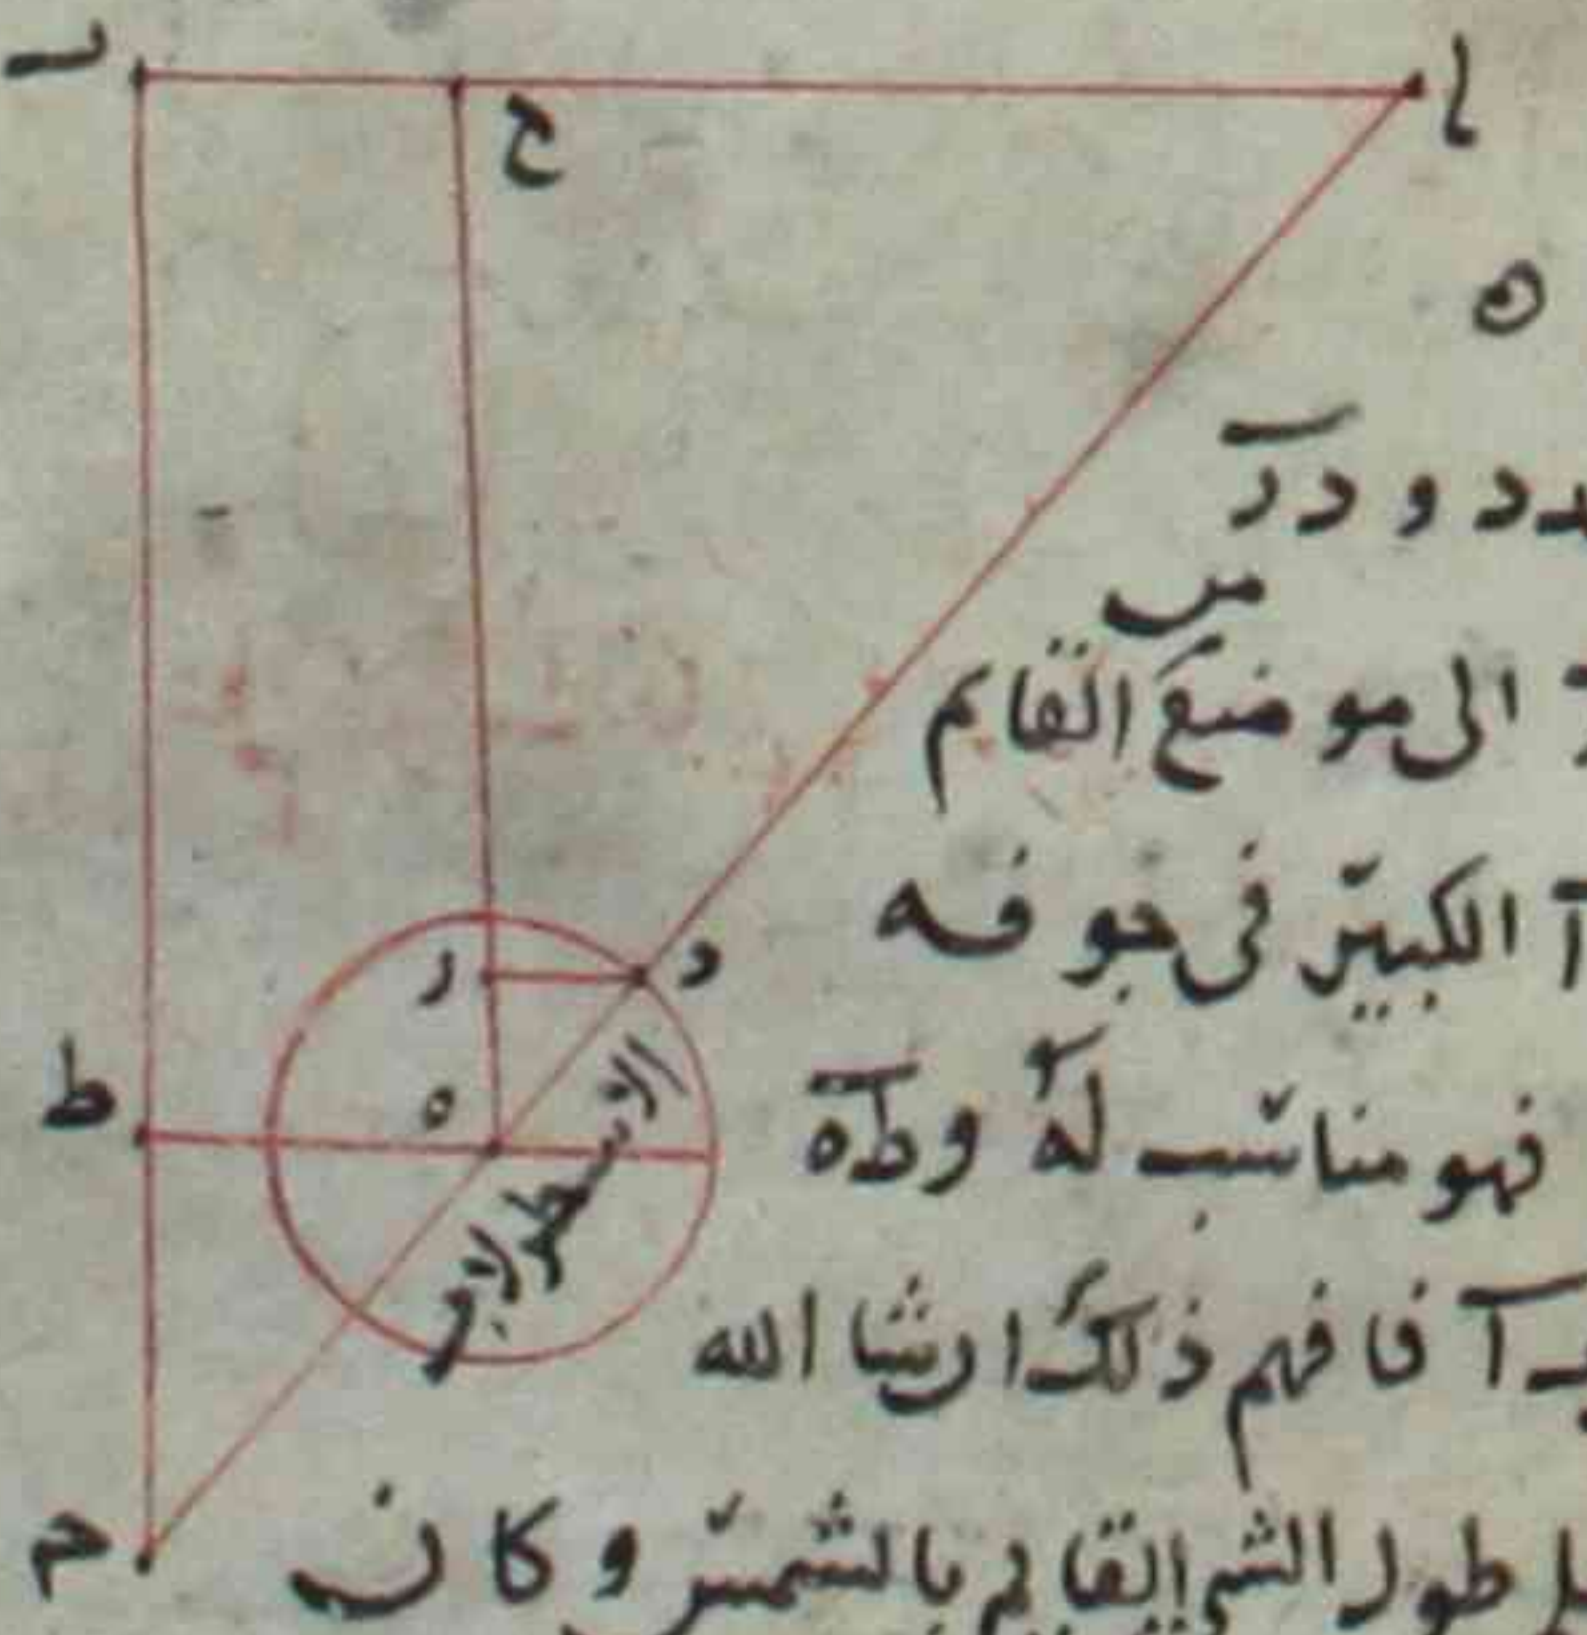 ا
ح
د و در
من
الى موضع القايم
آ الكبير فى جوفه
د
ر
الاسطرلاب
ه
ط
فهو مناسب له وطه
آ فافهم ذلك ان شا الله
طول الشى القايم بالشمس وكان